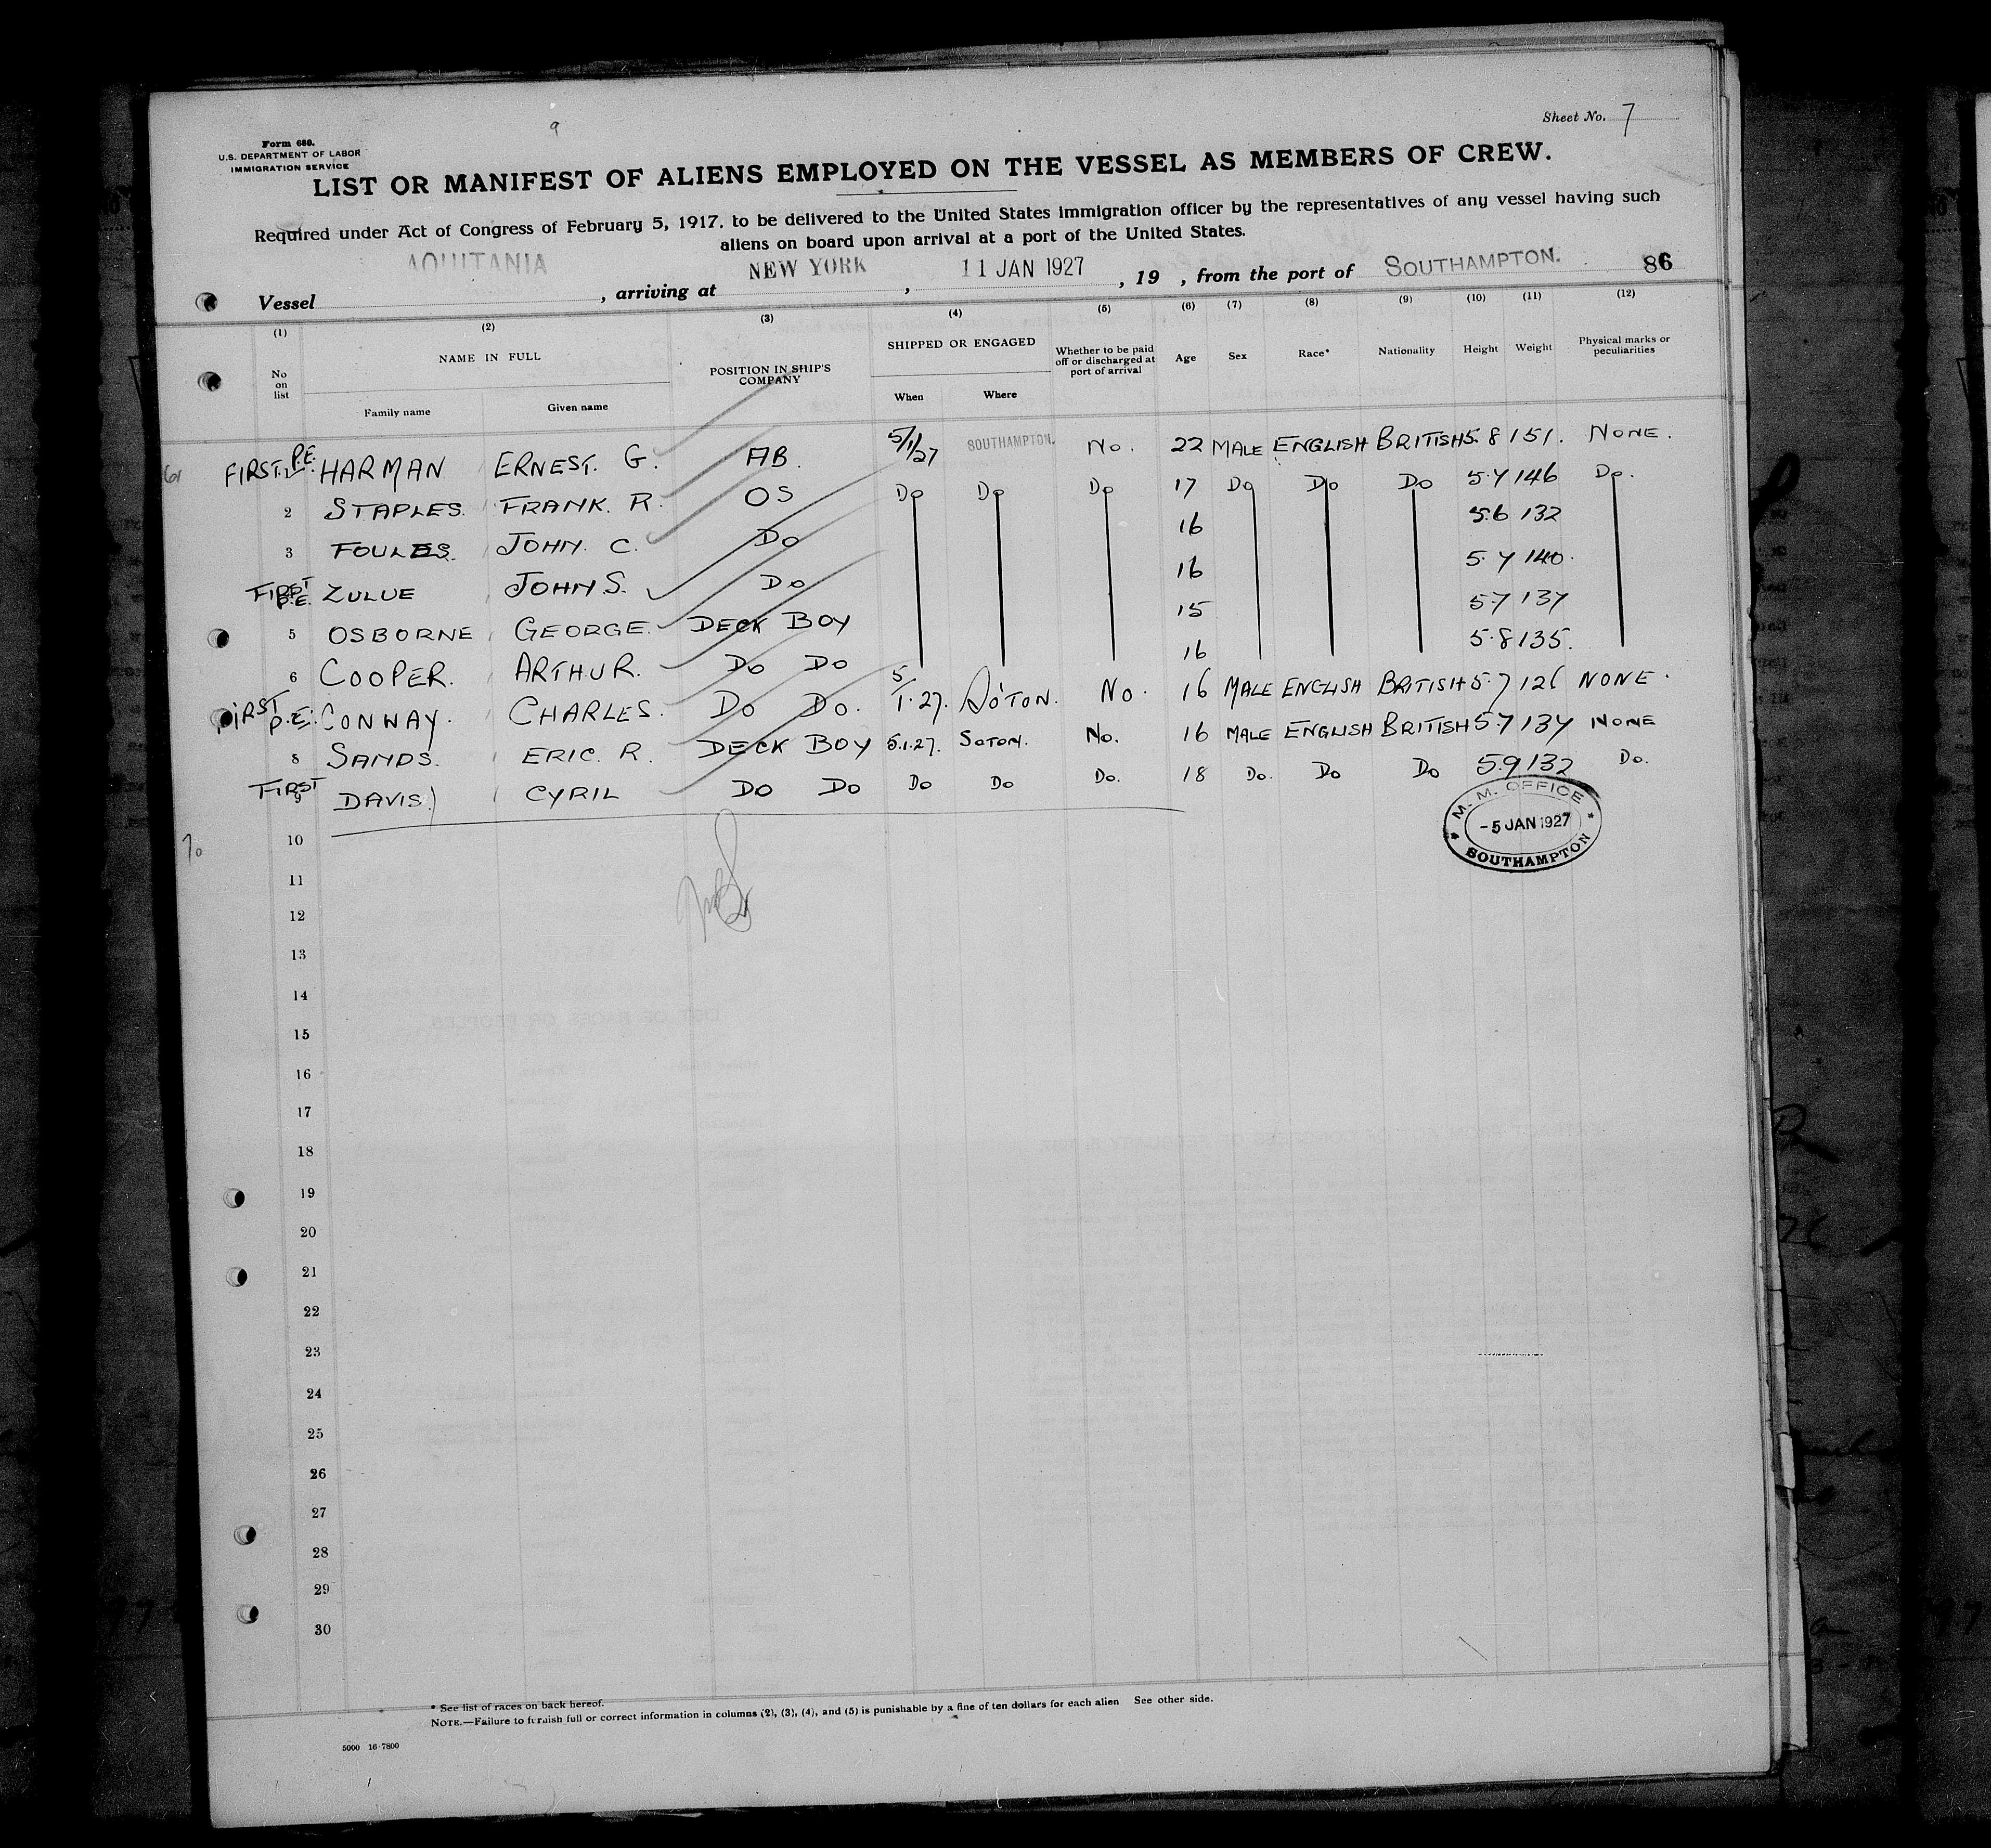 Sheet No. 7
9
Form 680.
U.S. DEPARTMENT OF LABOR
IMMIGRATION SERVICE
LIST OR MANIFEST OF ALIENS EMPLOYED ON THE VESSEL AS MEMBERS OF CREW.
Required under Act of Congress of February 5, 1917, to be delivered to the United States immigration officer by the representatives of any vessel having such
aliens on board upon arrival at a port of the United States.
Vessel AQUITANIA, arriving at NEW YORK, 11 JAN 1927, 19 , from the port of SOUTHAMPTON. 86
(1) (2) (3) (4) (5) (6) (7) (8) (9) (10) (11) (12)
No on list NAME IN FULL Family name Given name POSITION IN SHIP'S COMPANY SHIPPED OR ENGAGED When Where Whether to be paid off or discharged at port of arrival Age Sex Race* Nationality Height Weight Physical marks or peculiarities
FIRST P.E. HARMAN ERNEST. G. AB. 5/1/27 SOUTHAMPTON. No. 22 MALE ENGLISH BRITISH 5.8 151. NONE.
2 STAPLES. FRANK. R. OS Do Do Do 17 Do Do Do 5.7 146 Do.
3 FOULES. JOHN. C. Do 16 5.6 132
FIRST P.E. ZULUE JOHN S. Do 16 5.7 140.
5 OSBORNE GEORGE. DECK BOY 15 5.7 137
6 COOPER. ARTHUR. Do Do 16 5.8 135.
FIRST P.E. CONWAY. CHARLES. Do Do. 5/1.27. So'TON. No. 16 MALE ENGLISH BRITISH 5.7 126 NONE.
8 SANDS. ERIC. R. DECK BOY 5.1.27. SOTON. No. 16 MALE ENGLISH BRITISH 5.7 137 NONE
FIRST 9 DAVIS. CYRIL Do Do Do Do Do. 18 Do. Do Do 5.9 132 Do.
M. M. OFFICE
-5 JAN 1927
SOUTHAMPTON
10
11
12
13
14
15
16
17
18
19
20
21
22
23
24
25
26
27
28
29
30
* See list of races on back hereof.
NOTE.—Failure to furnish full or correct information in columns (2), (3), (4), and (5) is punishable by a fine of ten dollars for each alien See other side.
5000 16-7800